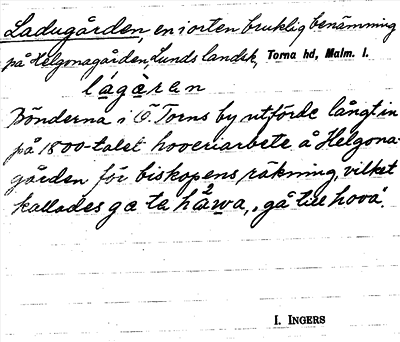 Ladugården, en i orten bruklig benämning
på Helgonagården, Lunds landsk, Torna hd, Malm. l.
lágàran
Bönderna i Ö. Torns by utförde långt in
på 1800-talet hoveriarbete å Helgona-
gården för biskopens räkning, vilket
kallades gɶ ta hå²wa, "gå till hova".
I. INGERS